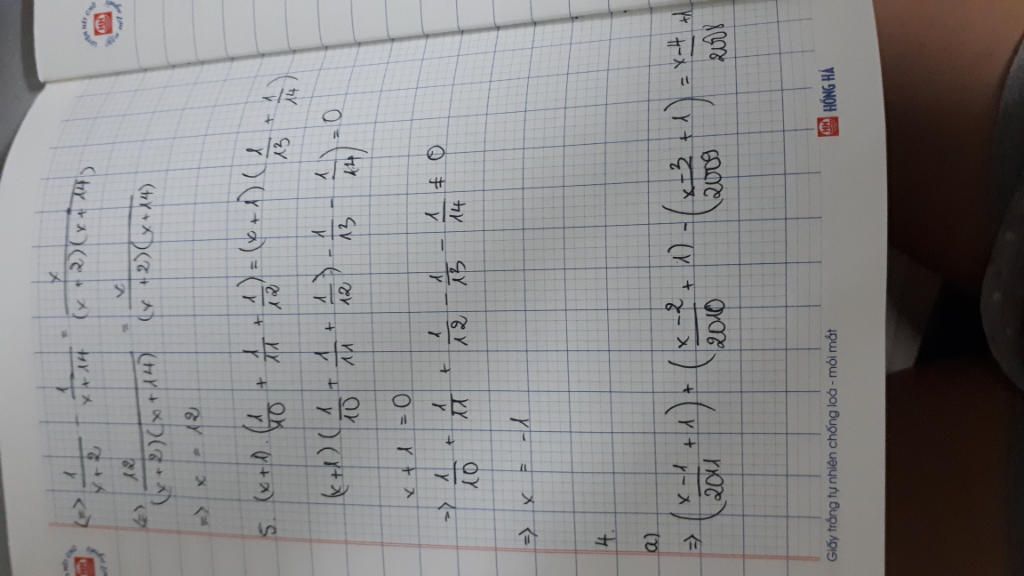 (=> 1/(x+2) - 1/(x+14) = x/((x+2)(x+14))
(=) 12/((x+2)(x+14)) = x/((x+2)(x+14))
=> x = 12
5. (x+1).(1/10 + 1/11 + 1/12) = (x+1)(1/13 + 1/14)
(x+1)(1/10 + 1/11 + 1/12) - 1/13 - 1/14) = 0
x+1 = 0
=> 1/10 + 1/11 + 1/12 - 1/13 - 1/14 ≠ 0
=> x = -1
4.
a)
=> ((x-1)/2011 + 1) + ((x-2)/2010 + 1) - ((x-3)/2009 + 1) = (x-4)/2008 +1
Giấy trắng tự nhiên chống loá - mỏi mắt
HỒNG HÀ